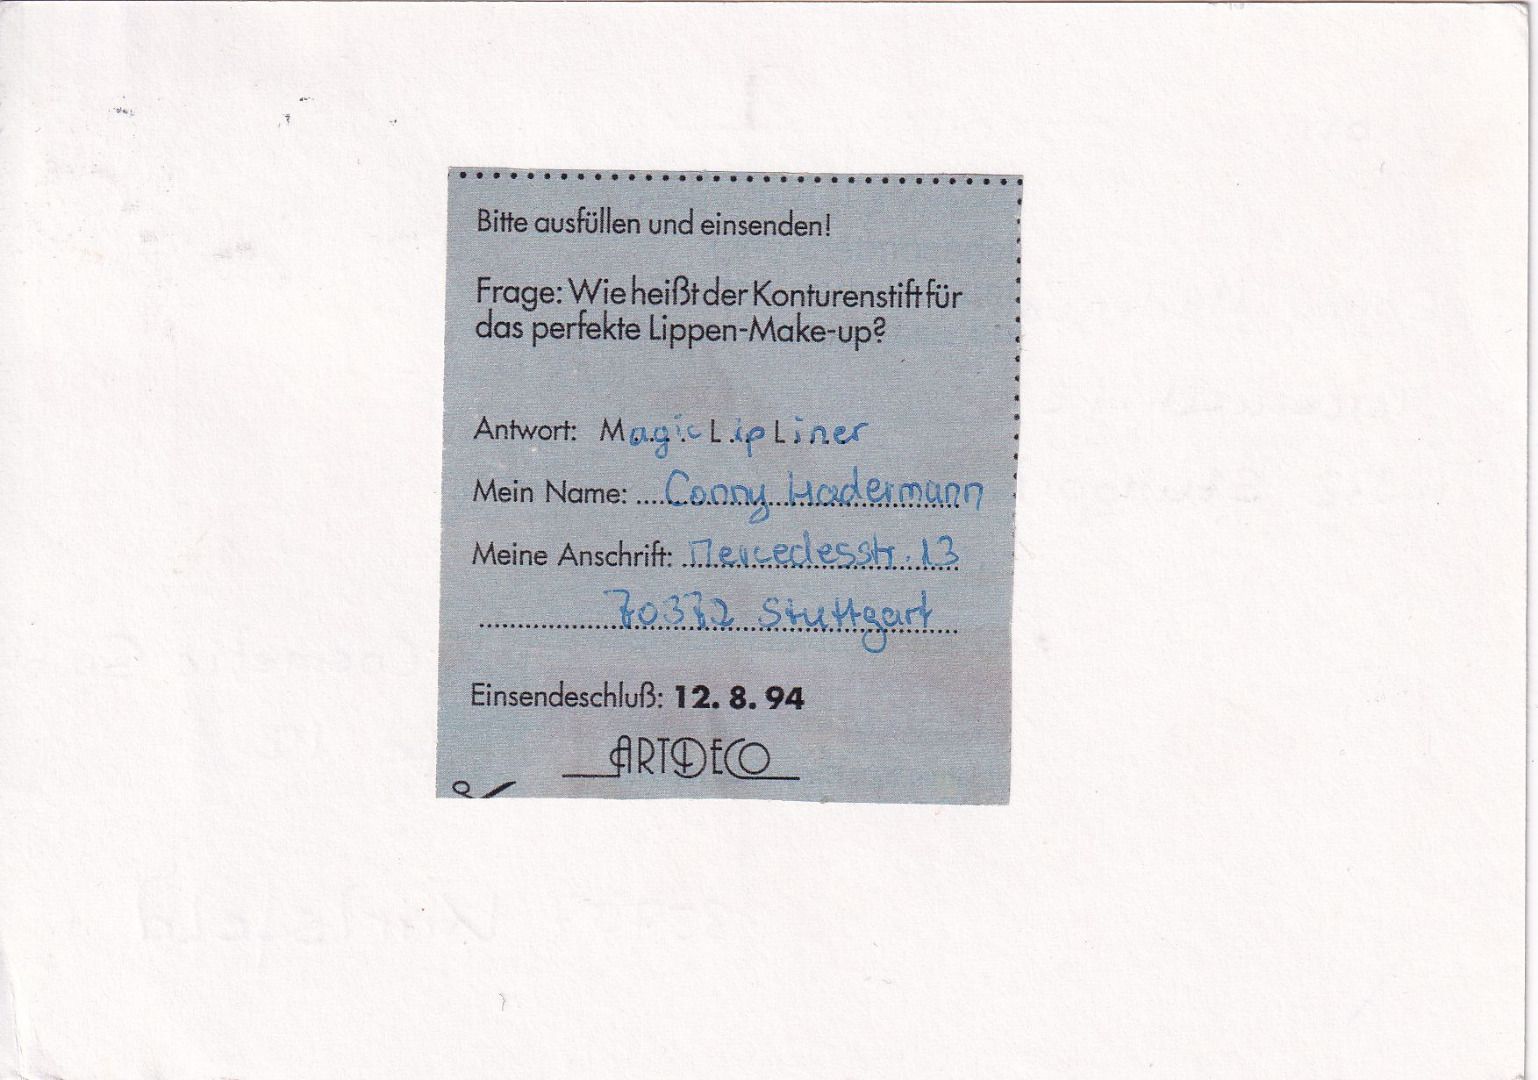 Bitte ausfüllen und einsenden!
Frage: Wie heißt der Konturenstift für
das perfekte Lippen-Make-up?
Antwort: Magic Lip Liner
Mein Name: ....Conny Hadermann
Meine Anschrift: Mercedesstr. 13
70372 Stuttgart
Einsendeschluß: 12. 8. 94
ARTDECO